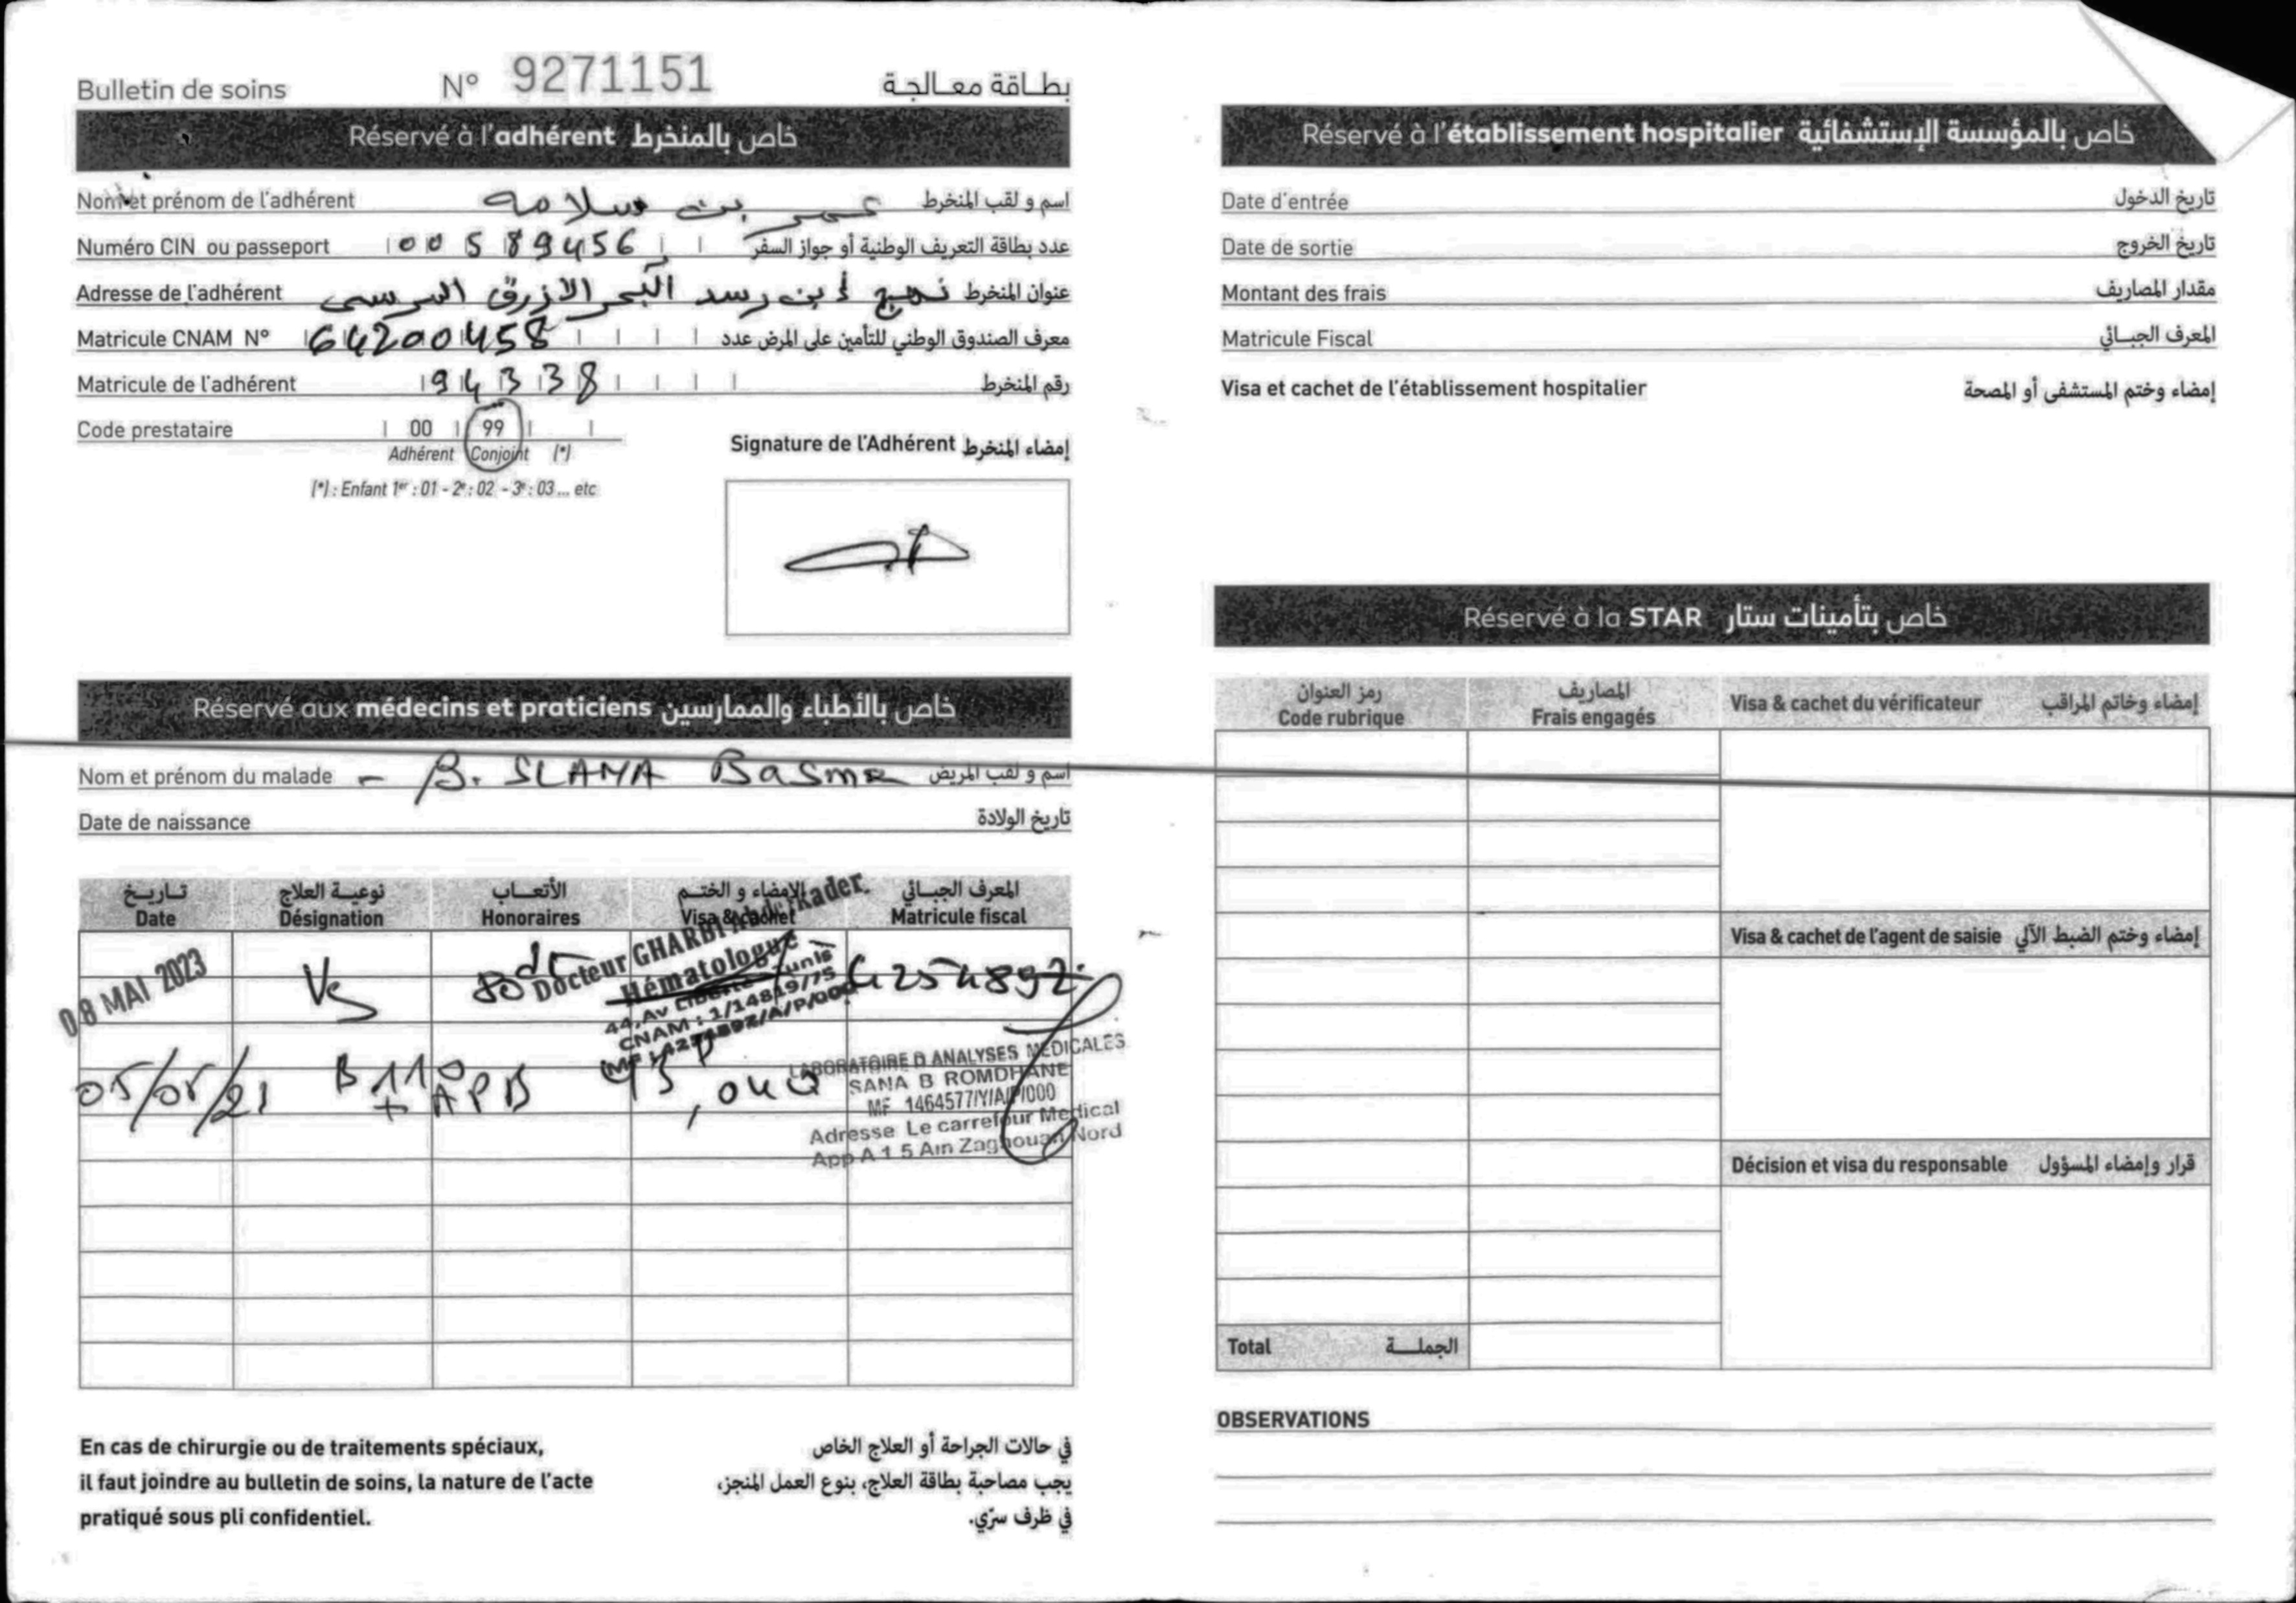 Bulletin de soins N° 9271151 بطاقة معالجة
Réservé à l'adhérent خاص بالمنخرط
Nom et prénom de l'adhérent عمر بن سلامه اسم و لقب المنخرط
Numéro CIN ou passeport 00589456 عدد بطاقة التعريف الوطنية أو جواز السفر
Adresse de l'adhérent نهج ابن رشد البحر الازرق المرسى عنوان المنخرط
Matricule CNAM N° 64200458 معرف الصندوق الوطني للتأمين على المرض عدد
Matricule de l'adhérent 94338 رقم المنخرط
Code prestataire 00 99
Adhérent Conjoint (*)
(*) : Enfant 1er : 01 - 2e : 02 - 3e : 03 ... etc
Signature de l'Adhérent إمضاء المنخرط
Réservé aux médecins et praticiens خاص بالأطباء والممارسين
Nom et prénom du malade - B. SLAMA Basma اسم و لقب المريض
Date de naissance تاريخ الولادة
تاريخ نوعية العلاج الأتعاب الإمضاء و الختم المعرف الجبائي
Date Désignation Honoraires Visa & cachet Matricule fiscal
08 MAI 2023 Vs 80 dt 4254892
Docteur GHARBI Abdelkader.
Hématologue
44, Av Liberté Tunis
CNAM : 1/14819/75
MF : 4254892/A/P/000
05/05/21 B110 + APB 43,040
LABORATOIRE D ANALYSES MEDICALES
SANA B ROMDHANE
MF 1464577/Y/A/P/000
Adresse Le carrefour Medical
App A 1 5 Ain Zaghouan Nord
En cas de chirurgie ou de traitements spéciaux,
il faut joindre au bulletin de soins, la nature de l'acte
pratiqué sous pli confidentiel.
في حالات الجراحة أو العلاج الخاص
يجب مصاحبة بطاقة العلاج، بنوع العمل المنجز،
في ظرف سرّي.
Réservé à l'établissement hospitalier خاص بالمؤسسة الإستشفائية
Date d'entrée تاريخ الدخول
Date de sortie تاريخ الخروج
Montant des frais مقدار المصاريف
Matricule Fiscal المعرف الجبائي
Visa et cachet de l'établissement hospitalier إمضاء وختم المستشفى أو المصحة
Réservé à la STAR خاص بتأمينات ستار
رمز العنوان المصاريف
Code rubrique Frais engagés Visa & cachet du vérificateur إمضاء وخاتم المراقب
Visa & cachet de l'agent de saisie إمضاء وختم الضبط الآلي
Décision et visa du responsable قرار وإمضاء المسؤول
Total الجملة
OBSERVATIONS